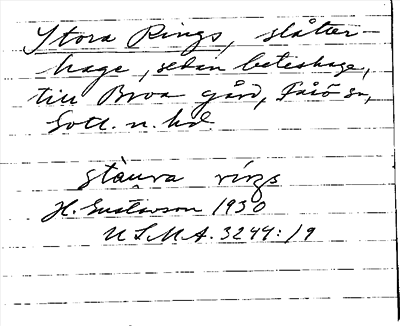 Stora Rings, slåtter-
hage, sedan beteshage,
till Broa gård, Fårö sn,
Gotl. n. hd.
stàu̯ra rings
H. Gustavson 1930
ULMA. 3244:19